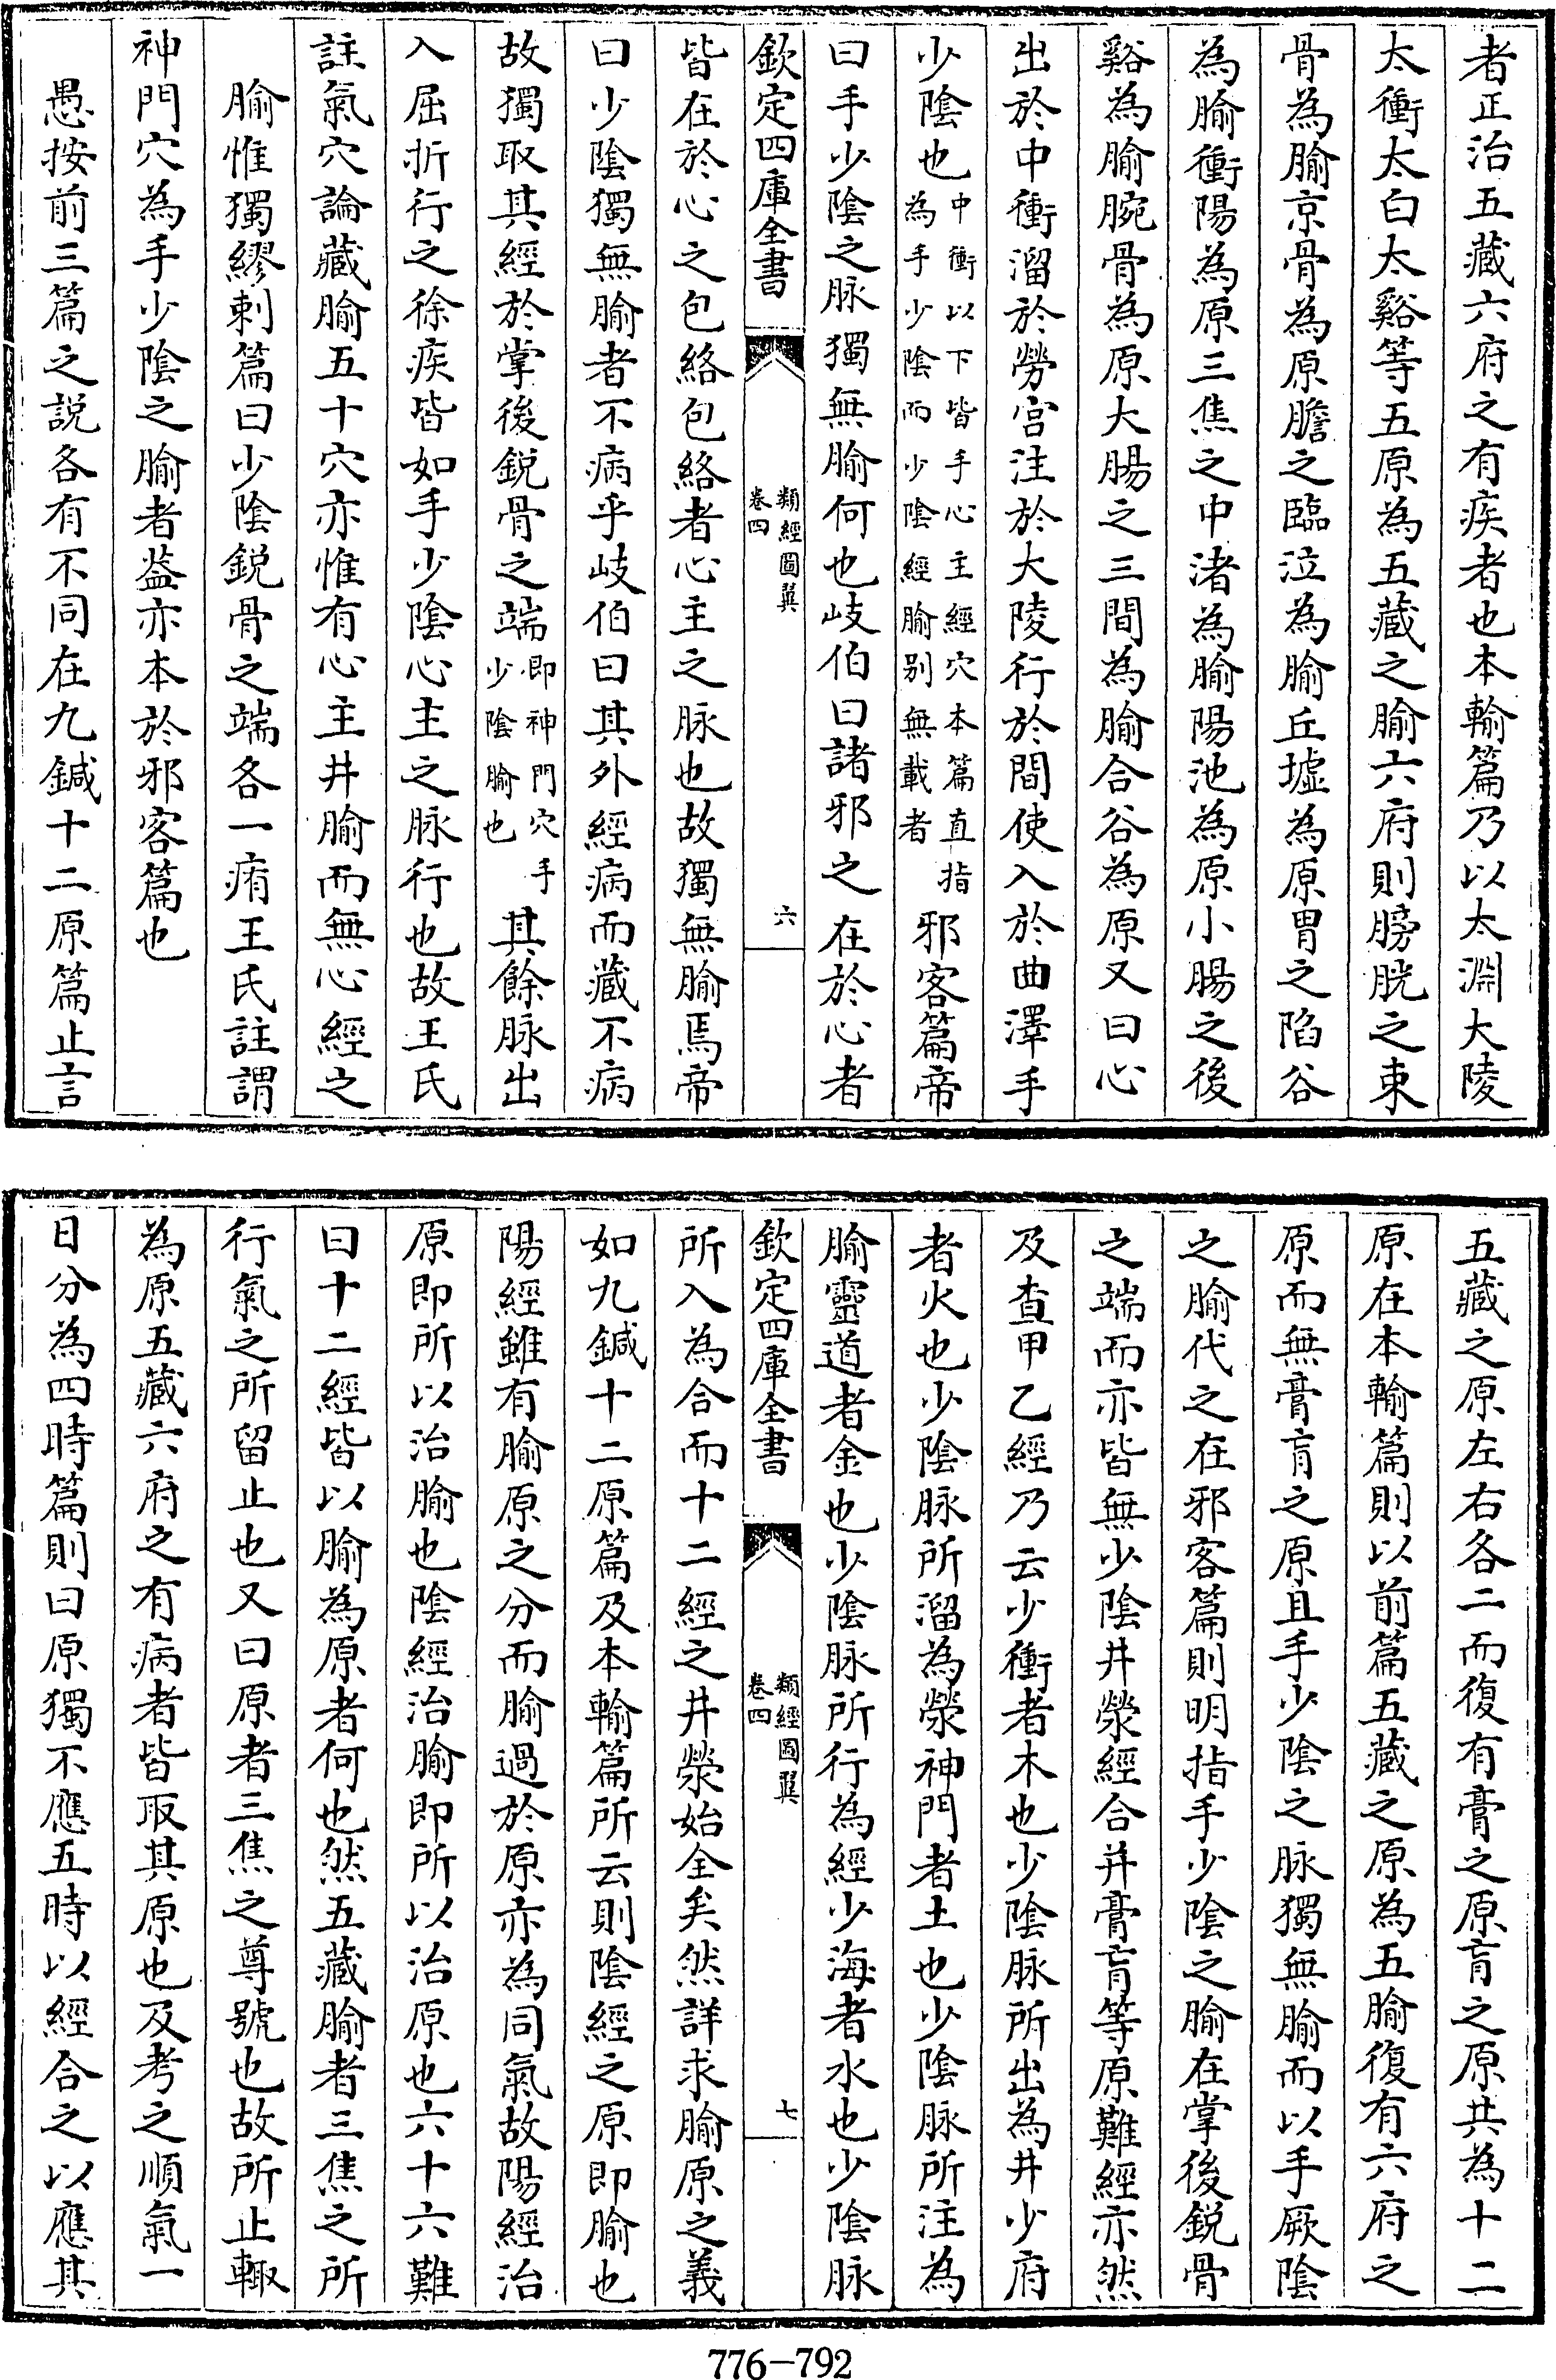 者正治五藏六府之有疾者也本輸篇乃以太淵大陵
太衝太白太谿等五原為五藏之腧六府則膀胱之束
骨為腧京骨為原膽之臨泣為腧丘墟為原胃之陷谷
為腧衝陽為原三焦之中渚為腧陽池為原小腸之後
谿為腧腕骨為原大腸之三間為腧合谷為原又曰心
出於中衝溜於勞宮注於大陵行於間使入於曲澤手
少陰也中衝以下皆手心主經穴本篇直指為手少陰而少陰經腧别無載者邪客篇帝
曰手少陰之脉獨無腧何也岐伯曰諸邪之在於心者
欽定四庫全書
類經圖翼
卷四
六
皆在於心之包絡包絡者心主之脉也故獨無腧焉帝
曰少陰獨無腧者不病乎岐伯曰其外經病而藏不病
故獨取其經於掌後鋭骨之端即神門穴手少陰腧也其餘脉出
入屈折行之徐疾皆如手少陰心主之脉行也故王氏
註氣穴論藏腧五十穴亦惟有心主井腧而無心經之
腧惟獨繆刺篇曰少陰鋭骨之端各一痏王氏註謂
神門穴為手少陰之腧者葢亦本於邪客篇也
愚按前三篇之説各有不同在九鍼十二原篇止言
五藏之原左右各二而復有膏之原肓之原共為十二
原在本輸篇則以前篇五藏之原為五腧復有六府之
原而無膏肓之原且手少陰之脉獨無腧而以手厥陰
之腧代之在邪客篇則明指手少陰之腧在掌後鋭骨
之端而亦皆無少陰井滎經合并膏肓等原難經亦然
及查甲乙經乃云少衝者木也少陰脉所出為井少府
者火也少陰脉所溜為滎神門者土也少陰脉所注為
腧靈道者金也少陰脉所行為經少海者水也少陰脉
欽定四庫全書
類經圖翼
卷四
七
所入為合而十二經之井滎始全矣然詳求腧原之義
如九鍼十二原篇及本輸篇所云則陰經之原即腧也
陽經雖有腧原之分而腧過於原亦為同氣故陽經治
原即所以治腧也陰經治腧即所以治原也六十六難
曰十二經皆以腧為原者何也然五藏腧者三焦之所
行氣之所留止也又曰原者三焦之尊號也故所止輙
為原五藏六府之有病者皆取其原也及考之順氣一
日分為四時篇則曰原獨不應五時以經合之以應其
776-792